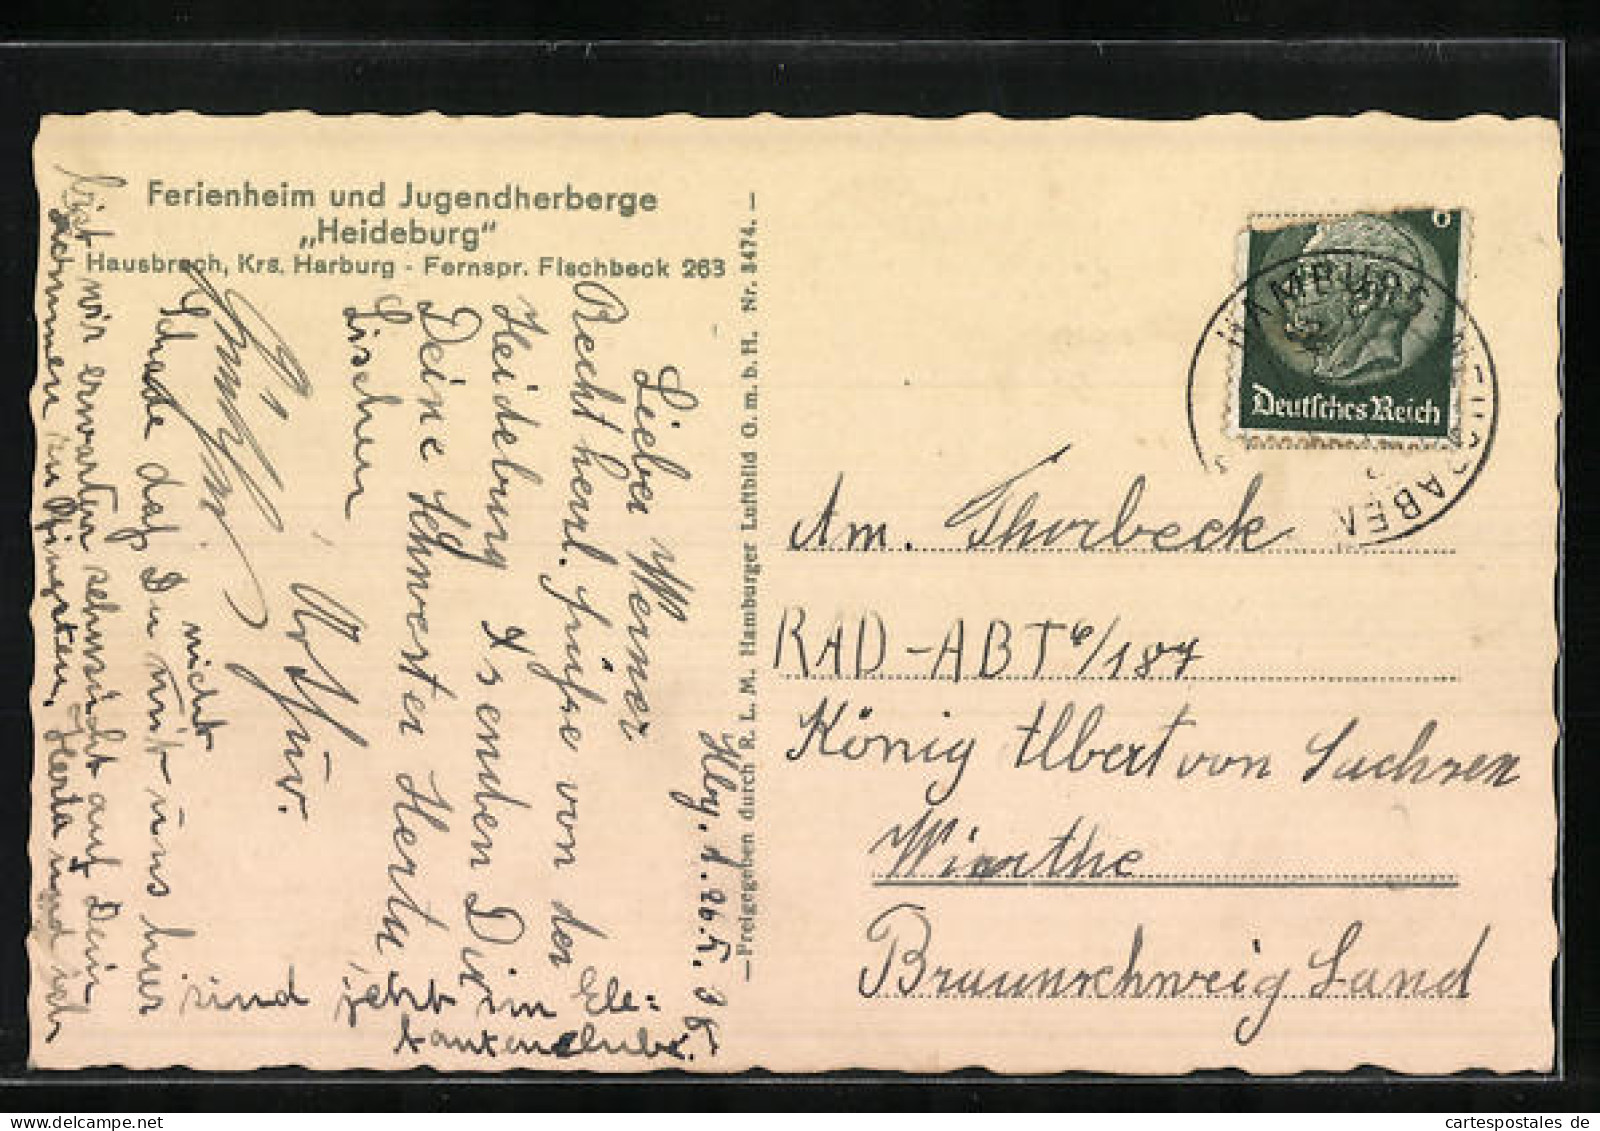 Ferienheim und Jugendherberge
„Heideburg"
Hausbruch, Krs. Harburg - Fernspr. Fischbeck 263
—Freigegeben durch R. L. M. Hamburger Luftbild G. m. b. H. Nr. 3474.—
Hbg. d. 26.5.
Lieber Werner
Recht herzl. Grüße von der
Heideburg senden Dir
Deine Schwester Herta,
Lieschen
Schade daß Du mit uns hier
nicht
bist wir erwarten sehnsücht auf Dein
kommen zu Pfingsten, Herta und ich
sind jetzt im
Deutsches Reich
6
HAMBURG
Am. Thorbeck
RAD-ABT 6/187
König Albert von Sachsen
Wierthe
Braunschweig Land
cartespostales.de